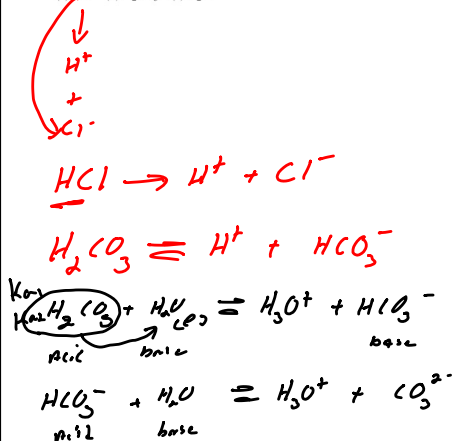 H⁺
+
Cl⁻
HCl → H⁺ + Cl⁻
H₂CO₃ ⇌ H⁺ + HCO₃⁻
Ka₁
Ka₂ H₂CO₃ + H₂O(l) ⇌ H₃O⁺ + HCO₃⁻
Acid base base
HCO₃⁻ + H₂O ⇌ H₃O⁺ + CO₃²⁻
Acid base